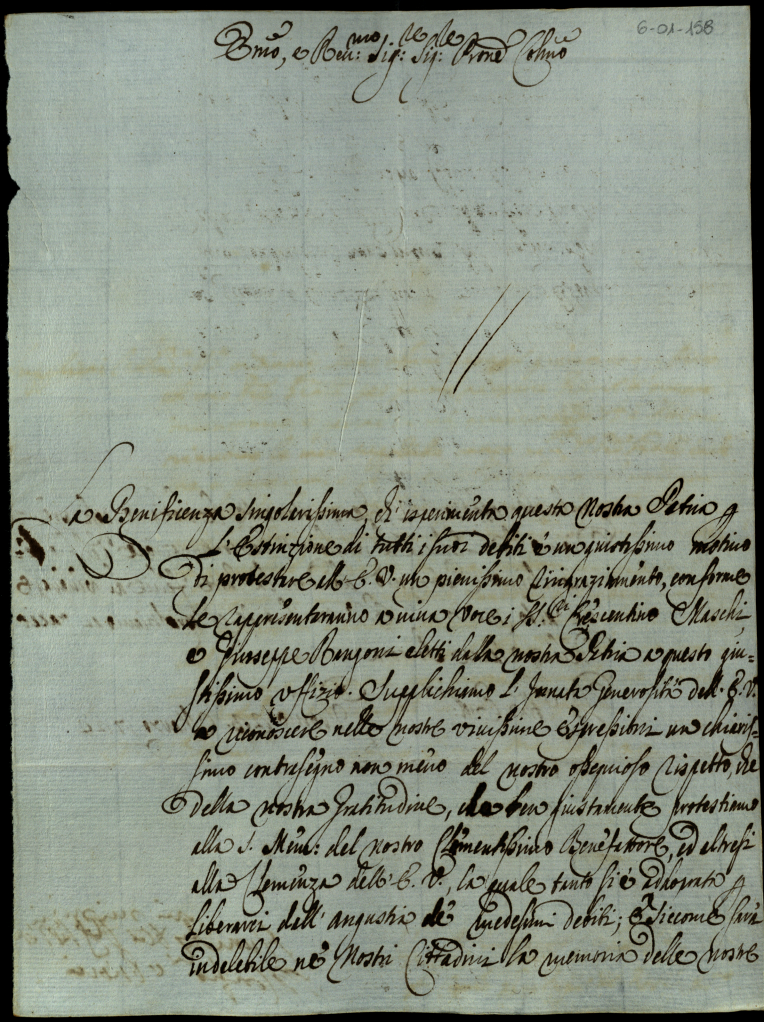 6-01-158
Emõ, e Reu: mo Sig: re Sig: re Prone Colmõ
La Benificienza singolarissima, ch'isperimenta questa nostra Patria p
L'Estinzione di tutti i suoi debiti è un giustissimo motivo
di protestare all'E. V. un pienissimo ringraziamento, conforme
Le rapresenteranno a viva voce i SS.ri Crescentino Maschi,
e Giuseppe Rangoni eletti dalla nostra Patria a questo giu=
stissimo uffizio. Supplichiamo L'Innata Generosità dell'E. V.
a riconoscere nelle nostre vivissime espressioni un chiaris=
simo contrasegno non meno del nostro ossequioso rispetto, che
della nostra Gratitudine, che ben giustamente protestiamo
alla S. Mem: del nostro Clementissimo Benefattore, ed altresi
alla Clemenza dell'E. V., la quale tanto si è adoprata p
liberarci dall'angustia de' medesimi debiti; e siccome sarà
indelebile ne' Nostri Cittadini la memoria delle nostre